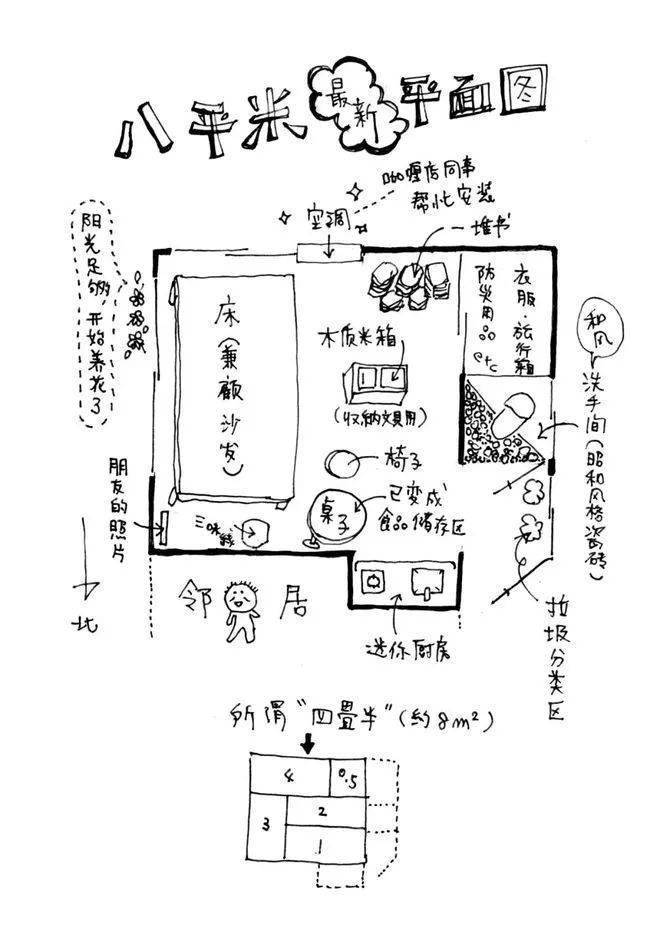 八平米
最新
平面图
咖喱店同事
帮忙安装
空调
一堆书
阳光足够，开始养花了
床（兼顾沙发）
木质米箱
（收纳文具用）
衣服·旅行箱
防災用品
etc
和风
洗手间（昭和风格瓷砖）
椅子
桌子
已变成
食品储存区
朋友的照片
三味線
北
邻居
迷你厨房
垃圾分类区
所谓"四畳半"(约8m²)
4
0.5
3
2
1